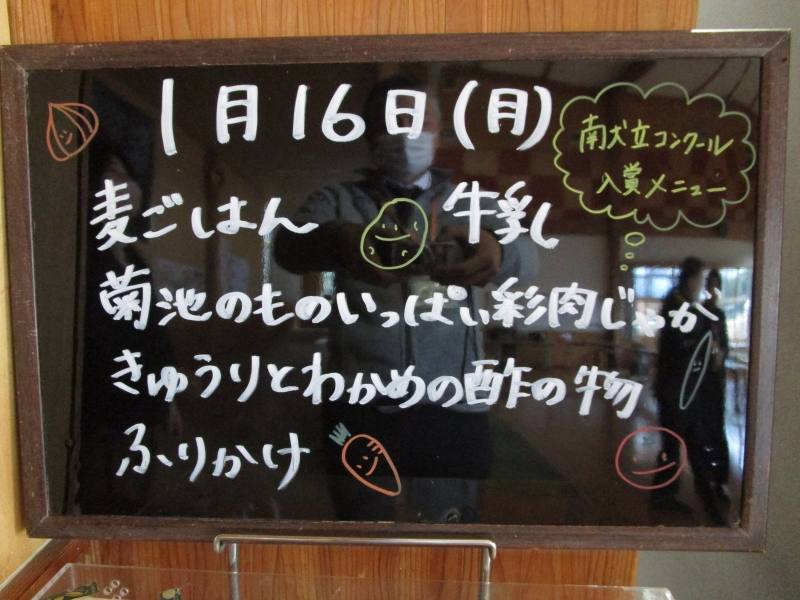 1月16日(月)
南犬立コンクール
入賞メニュー
麦ごはん 牛乳
菊池のものいっぱい彩肉じゃが
きゅうりとわかめの酢の物
ふりかけ